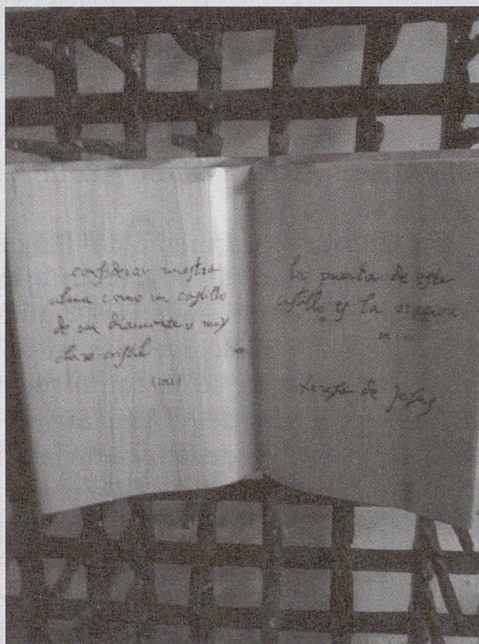 considerar nuestra
alma como un castillo
de un diamante o muy
claro cristal
(1M1)
la puerta de este
castillo es la oracion
teresa de jesus